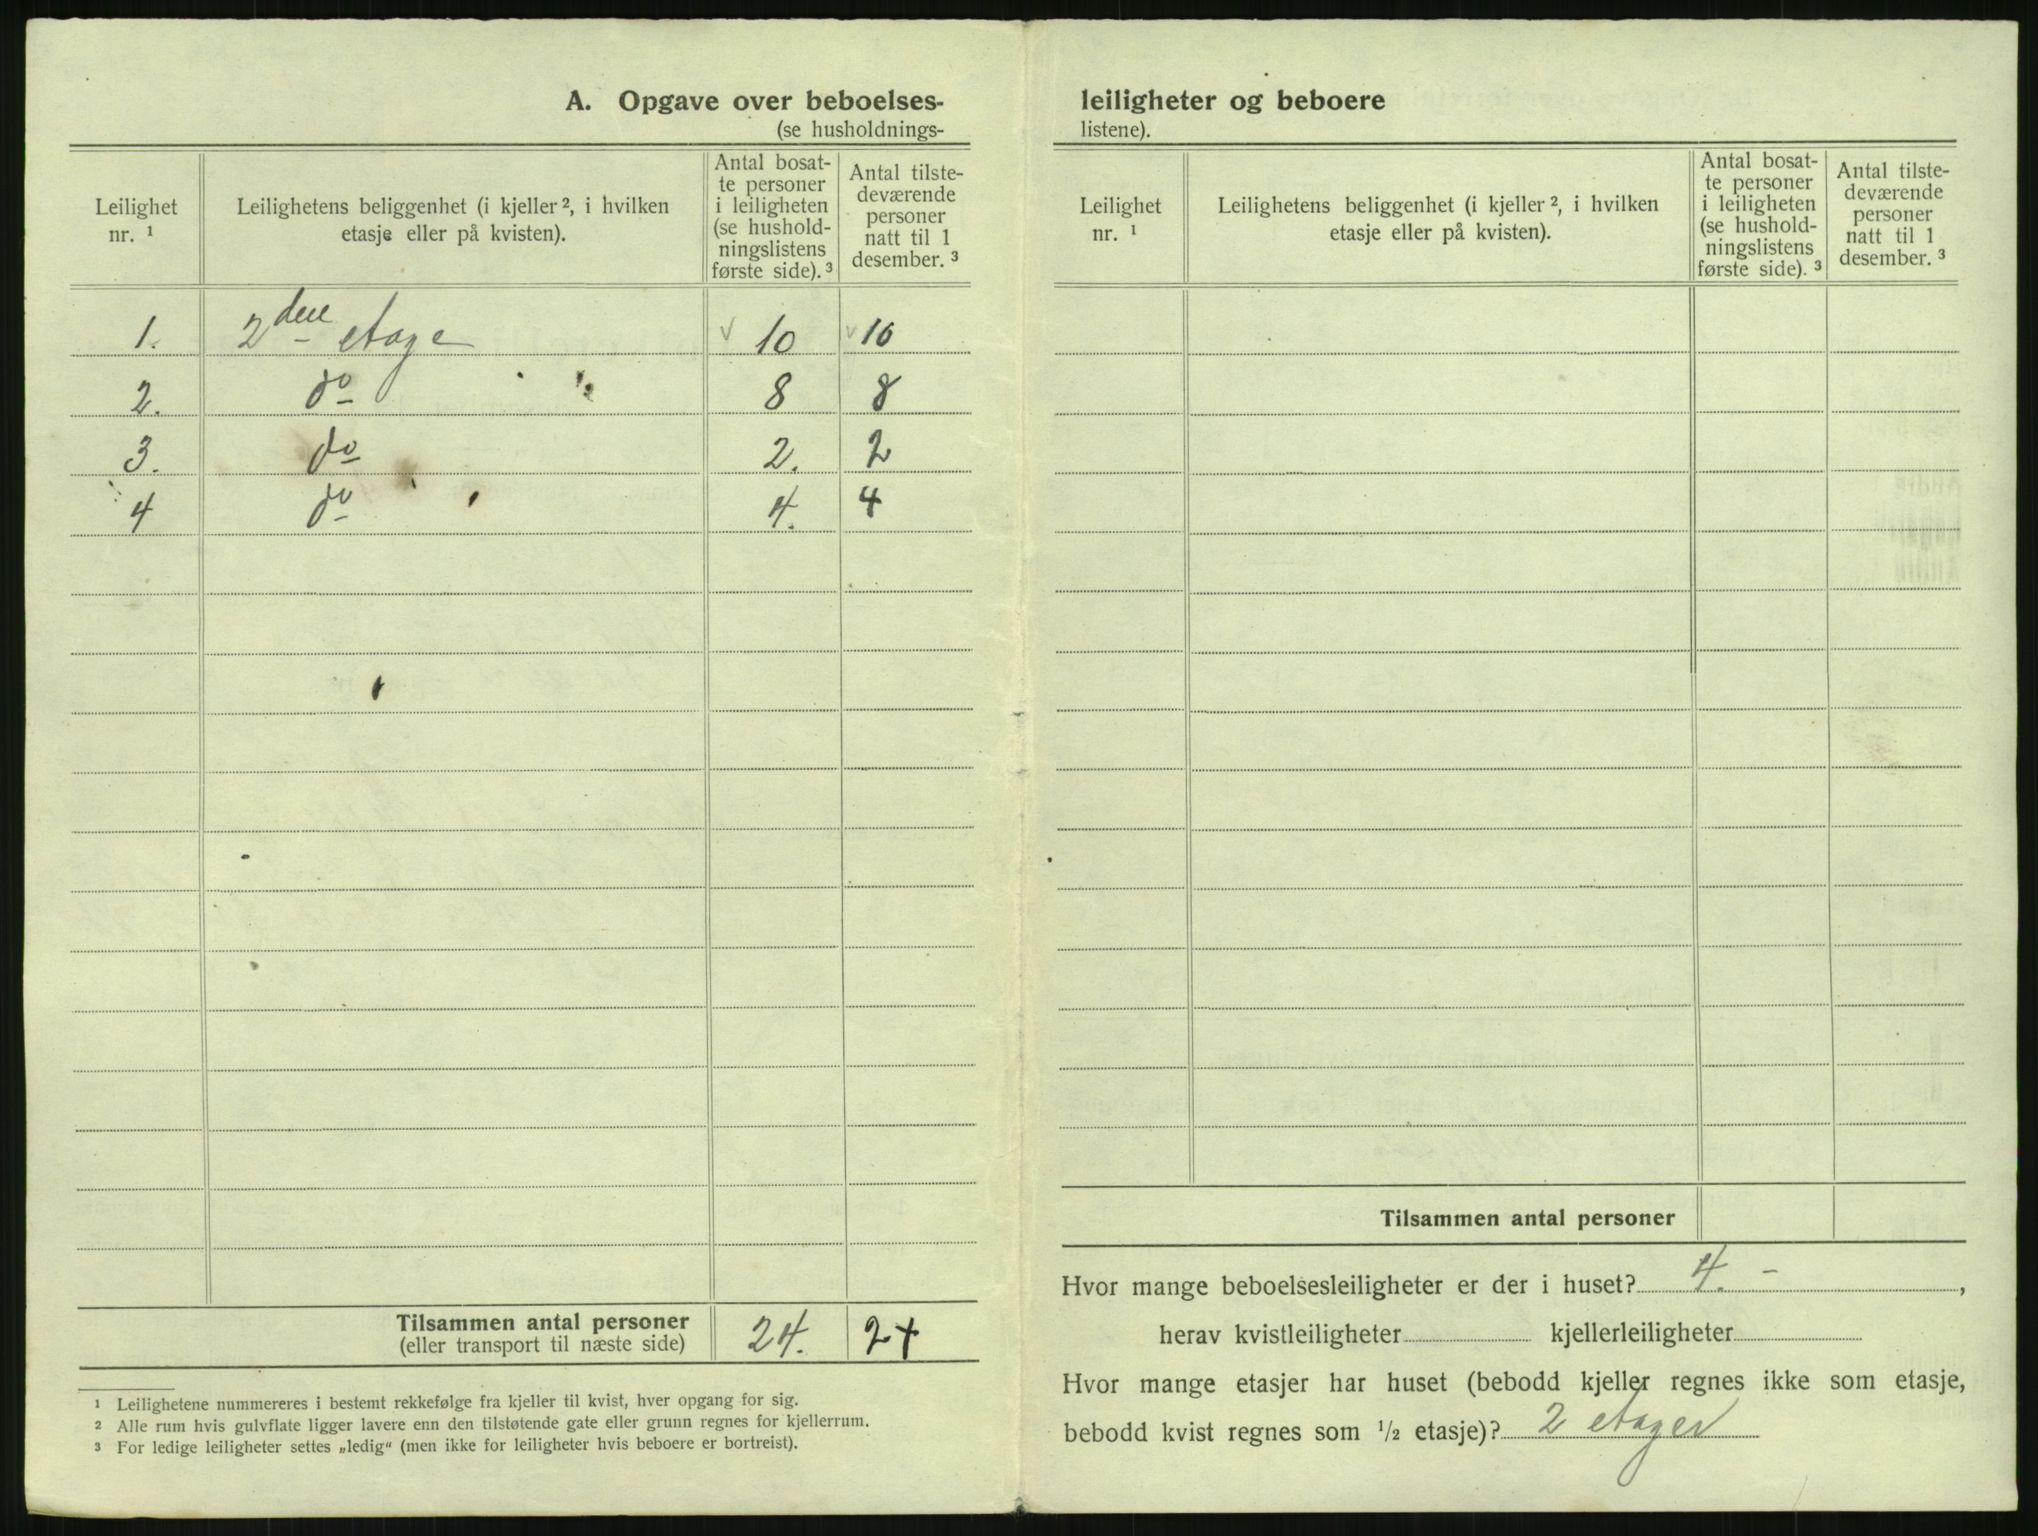 A. Opgave over beboelses-
(se husholdnings-
Leilighet nr. ¹
Leilighetens beliggenhet (i kjeller ², i hvilken etasje eller på kvisten).
Antal bosat-
te personer
i leiligheten
(se hushold-
ningslistens
første side). ³
Antal tilste-
deværende
personer
natt til 1
desember. ³
1. 2den etage 10 10
2. do 8 8
3. do 2. 2
4 do 4. 4
Tilsammen antal personer 24. 24
(eller transport til næste side)
¹ Leilighetene nummereres i bestemt rekkefølge fra kjeller til kvist, hver opgang for sig.
² Alle rum hvis gulvflate ligger lavere enn den tilstøtende gate eller grunn regnes for kjellerrum.
³ For ledige leiligheter settes „ledig“ (men ikke for leiligheter hvis beboere er bortreist).
leiligheter og beboere
listene).
Leilighet nr. ¹
Leilighetens beliggenhet (i kjeller ², i hvilken etasje eller på kvisten).
Antal bosat-
te personer
i leiligheten
(se hushold-
ningslistens
første side). ³
Antal tilste-
deværende
personer
natt til 1
desember. ³
Tilsammen antal personer
Hvor mange beboelsesleiligheter er der i huset? 4. - ,
herav kvistleiligheter kjellerleiligheter
Hvor mange etasjer har huset (bebodd kjeller regnes ikke som etasje,
bebodd kvist regnes som ½ etasje)? 2 etager